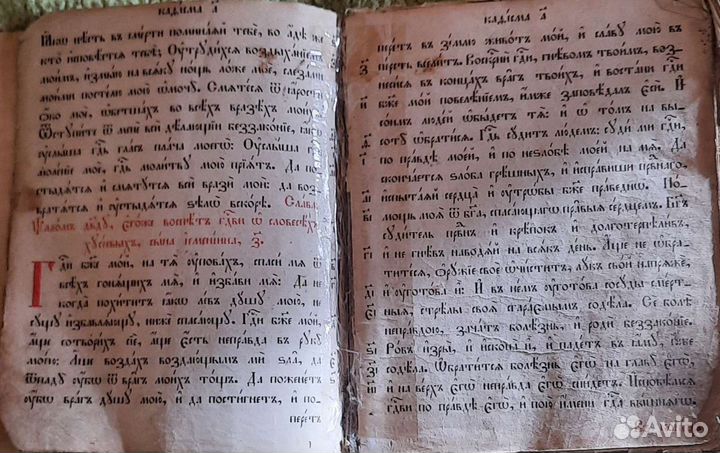 каѳі́сма а҃
Ꙗ҆́кѡ нѣ́сть въ сме́рти помина́ѧй тебѐ, во а҆́дѣ же
кто̀ и҆сповѣ́стсѧ тебѣ̀; Оу҆труди́хсѧ воздыха́нїемъ
мои́мъ, и҆змы́ю на всѧ́ку но́щь ло́же моѐ, слеза́ми
мои́ми посте́лю мою̀ ѡ҆мочꙋ̀. Смѧте́сѧ ѿ ꙗ҆́рости
ѻ҆́ко моѐ, ѡ҆бетша́хъ во всѣ́хъ вразѣ́хъ мои́хъ.
Ѿступи́те ѿ менє̀ всѝ дѣ́лающїи беззако́нїе, ꙗ҆́кѡ
оу҆слы́ша гдⷭ҇ь гла́съ пла́ча моегѡ̀: Оу҆слы́ша гдⷭ҇ь
моле́нїе моѐ, гдⷭ҇ь моли́тву мою̀ прїѧ́тъ. Да по-
стыдѧ́тсѧ и҆ смѧту́тсѧ всѝ вразѝ моѝ: да воз-
вратѧ́тсѧ и҆ оу҆стыдѧ́тсѧ ѕѣлѡ̀ вско́рѣ. Сла́ва,
Ѱало́мъ дв҃ду, є҆го́же воспѣ́тъ гдⷭ҇ви ѡ҆ словесѣ́хъ
хусі́иныхъ, сы́на і҆емені́ина, з҃.
Гдⷭ҇и бж҃е мо́й, на тѧ̀ оу҆пова́хъ, спаси́ мѧ ѿ
всѣ́хъ гонѧ́щихъ мѧ̀, и҆ и҆зба́ви мѧ̀. Да не
когда̀ похи́титъ ꙗ҆́кѡ ле́въ ду́шу мою̀, не
су́щу и҆збавлѧ́ющу, нижѐ спаса́ющу. Гдⷭ҇и бж҃е мо́й,
а҆́ще сотвори́хъ сїѐ, а҆́ще є҆́сть непра́вда въ руку̀
мое́ю: А҆́ще возда́хъ воздаю́щымъ мѝ ѕла̀, да
ѿпаду̀ оу҆́бѡ ѿ вра̑гъ мои́хъ то́щъ. Да пожене́тъ
оу҆́бѡ вра́гъ ду́шу мою̀, и҆ да пости́гнетъ, и҆ по-
пере́тъ
каѳі́сма а҃
пере́тъ въ зе́млю живо́тъ мо́й, и҆ сла́ву мою̀ въ
з҃ пе́рсть всели́тъ. Воскреснѝ гдⷭ҇и, гнѣ́вомъ твои́мъ, воз-
неси́сѧ въ конца́хъ вра̑гъ твои́хъ, и҆ воста́ни гдⷭ҇и
и҃ бж҃е мо́й повелѣ́нїемъ, и҆́мже заповѣ́далъ є҆сѝ: И҆
со́нмъ люде́й ѡ҆бы́детъ тѧ̀: и҆ ѡ҆ то́мъ на вы-
соту̀ ѡ҆брати́сѧ. Гдⷭ҇ь су́дитъ лю́демъ: суди́ ми гдⷭ҇и,
по пра́вдѣ мое́й, и҆ по неѕло́бѣ мое́й на мѧ̀. Да
сконча́етсѧ ѕло́ба грѣ́шныхъ, и҆ и҆спра́виши првⷣнаго,
и҆спыта́ѧй сердца̀ и҆ оу҆трѡ́бы бж҃е пра́веднѡ. По́-
мощь моѧ̀ ѿ бг҃а, спаса́ющагѡ пра̑выѧ се́рдцемъ. Бг҃ъ
суди́тель првⷣнъ и҆ крѣ́покъ и҆ долготерпѣли́въ,
и҆ не гнѣ́въ наводѧ́й на всѧ́къ де́нь. А҆́ще не ѡ҆бра-
тите́сѧ, ѻ҆ру́жїе своѐ ѡ҆чи́ститъ, лу́къ сво́й напрѧжѐ,
и҆ оу҆гото́ва и҆̀: И҆ въ не́мъ оу҆гото́ва сосу́ды сме́рт-
ныѧ, стрѣ́лы своѧ̑ сгара́емымъ содѣ́ла. Сѐ болѣ̀
непра́вдою, зача́тъ болѣ́знь, и҆ родѝ беззако́нїе.
Ро́въ и҆зры̀, и҆ и҆скопа̀ и҆̀, и҆ паде́тъ въ ꙗ҆́му, ю҆́же
содѣ́ла. Ѡ҆брати́тсѧ болѣ́знь є҆гѡ̀ на главу̀ є҆гѡ̀,
и҆ на ве́рхъ є҆гѡ̀ непра́вда є҆гѡ̀ сни́детъ. И҆сповѣ́мсѧ
гдⷭ҇ви по пра́вдѣ є҆гѡ̀, и҆ пою̀ и҆́мени гдⷭ҇а вы́шнѧгѡ.
Avito